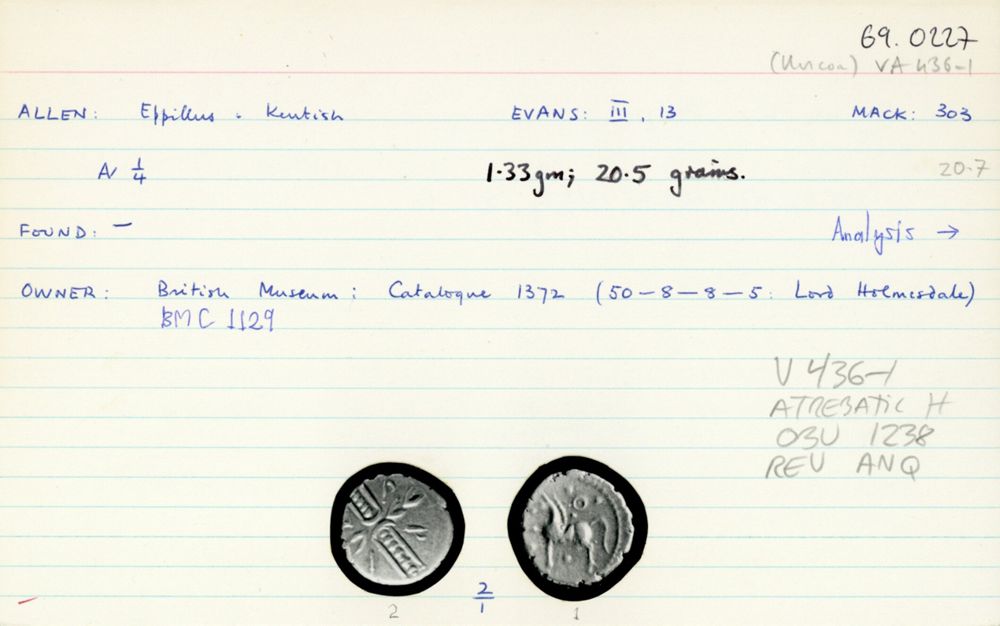 69.0227
(Unicoa) VA 436-1
ALLEN: Eppillus . Kentish EVANS: III, 13 MACK: 303
AV 1/4 1.33gm; 20.5 grains. 20.7
FOUND: — Analysis →
OWNER: British Museum: Catalogue 1372 (50-8-8-5: Lord Holmesdale)
BMC 1129
V 436-1
ATREBATIC H
OBV 1238
REV ANQ
2/1
2 1